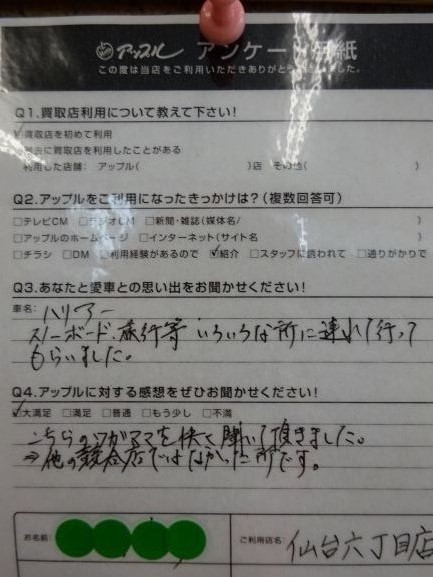 アップル アンケート用紙
この度は当店をご利用いただきありがとうございました。
Q1.買取店利用について教えて下さい!
買取店を初めて利用
過去に買取店を利用したことがある
利用した店舗: アップル( )店 その他( )
Q2.アップルをご利用になったきっかけは?(複数回答可)
□テレビCM □ラジオCM □新聞・雑誌(媒体名/ )
□アップルのホームページ □インターネット(サイト名 )
□チラシ □DM □利用経験があるので ☑紹介 □スタッフに誘われて □通りがかりで
Q3.あなたと愛車との思い出をお聞かせください!
車名: ハリアー
スノーボード、旅行等 いろいろな所に連れて行って
もらいました。
Q4.アップルに対する感想をぜひお聞かせください!
☑大満足 □満足 □普通 □もう少し □不満
こちらのワガママを快く聞いて頂きました。
⇒他の競合店ではなかった所です。
お名前:
ご利用店名: 仙台六丁目店